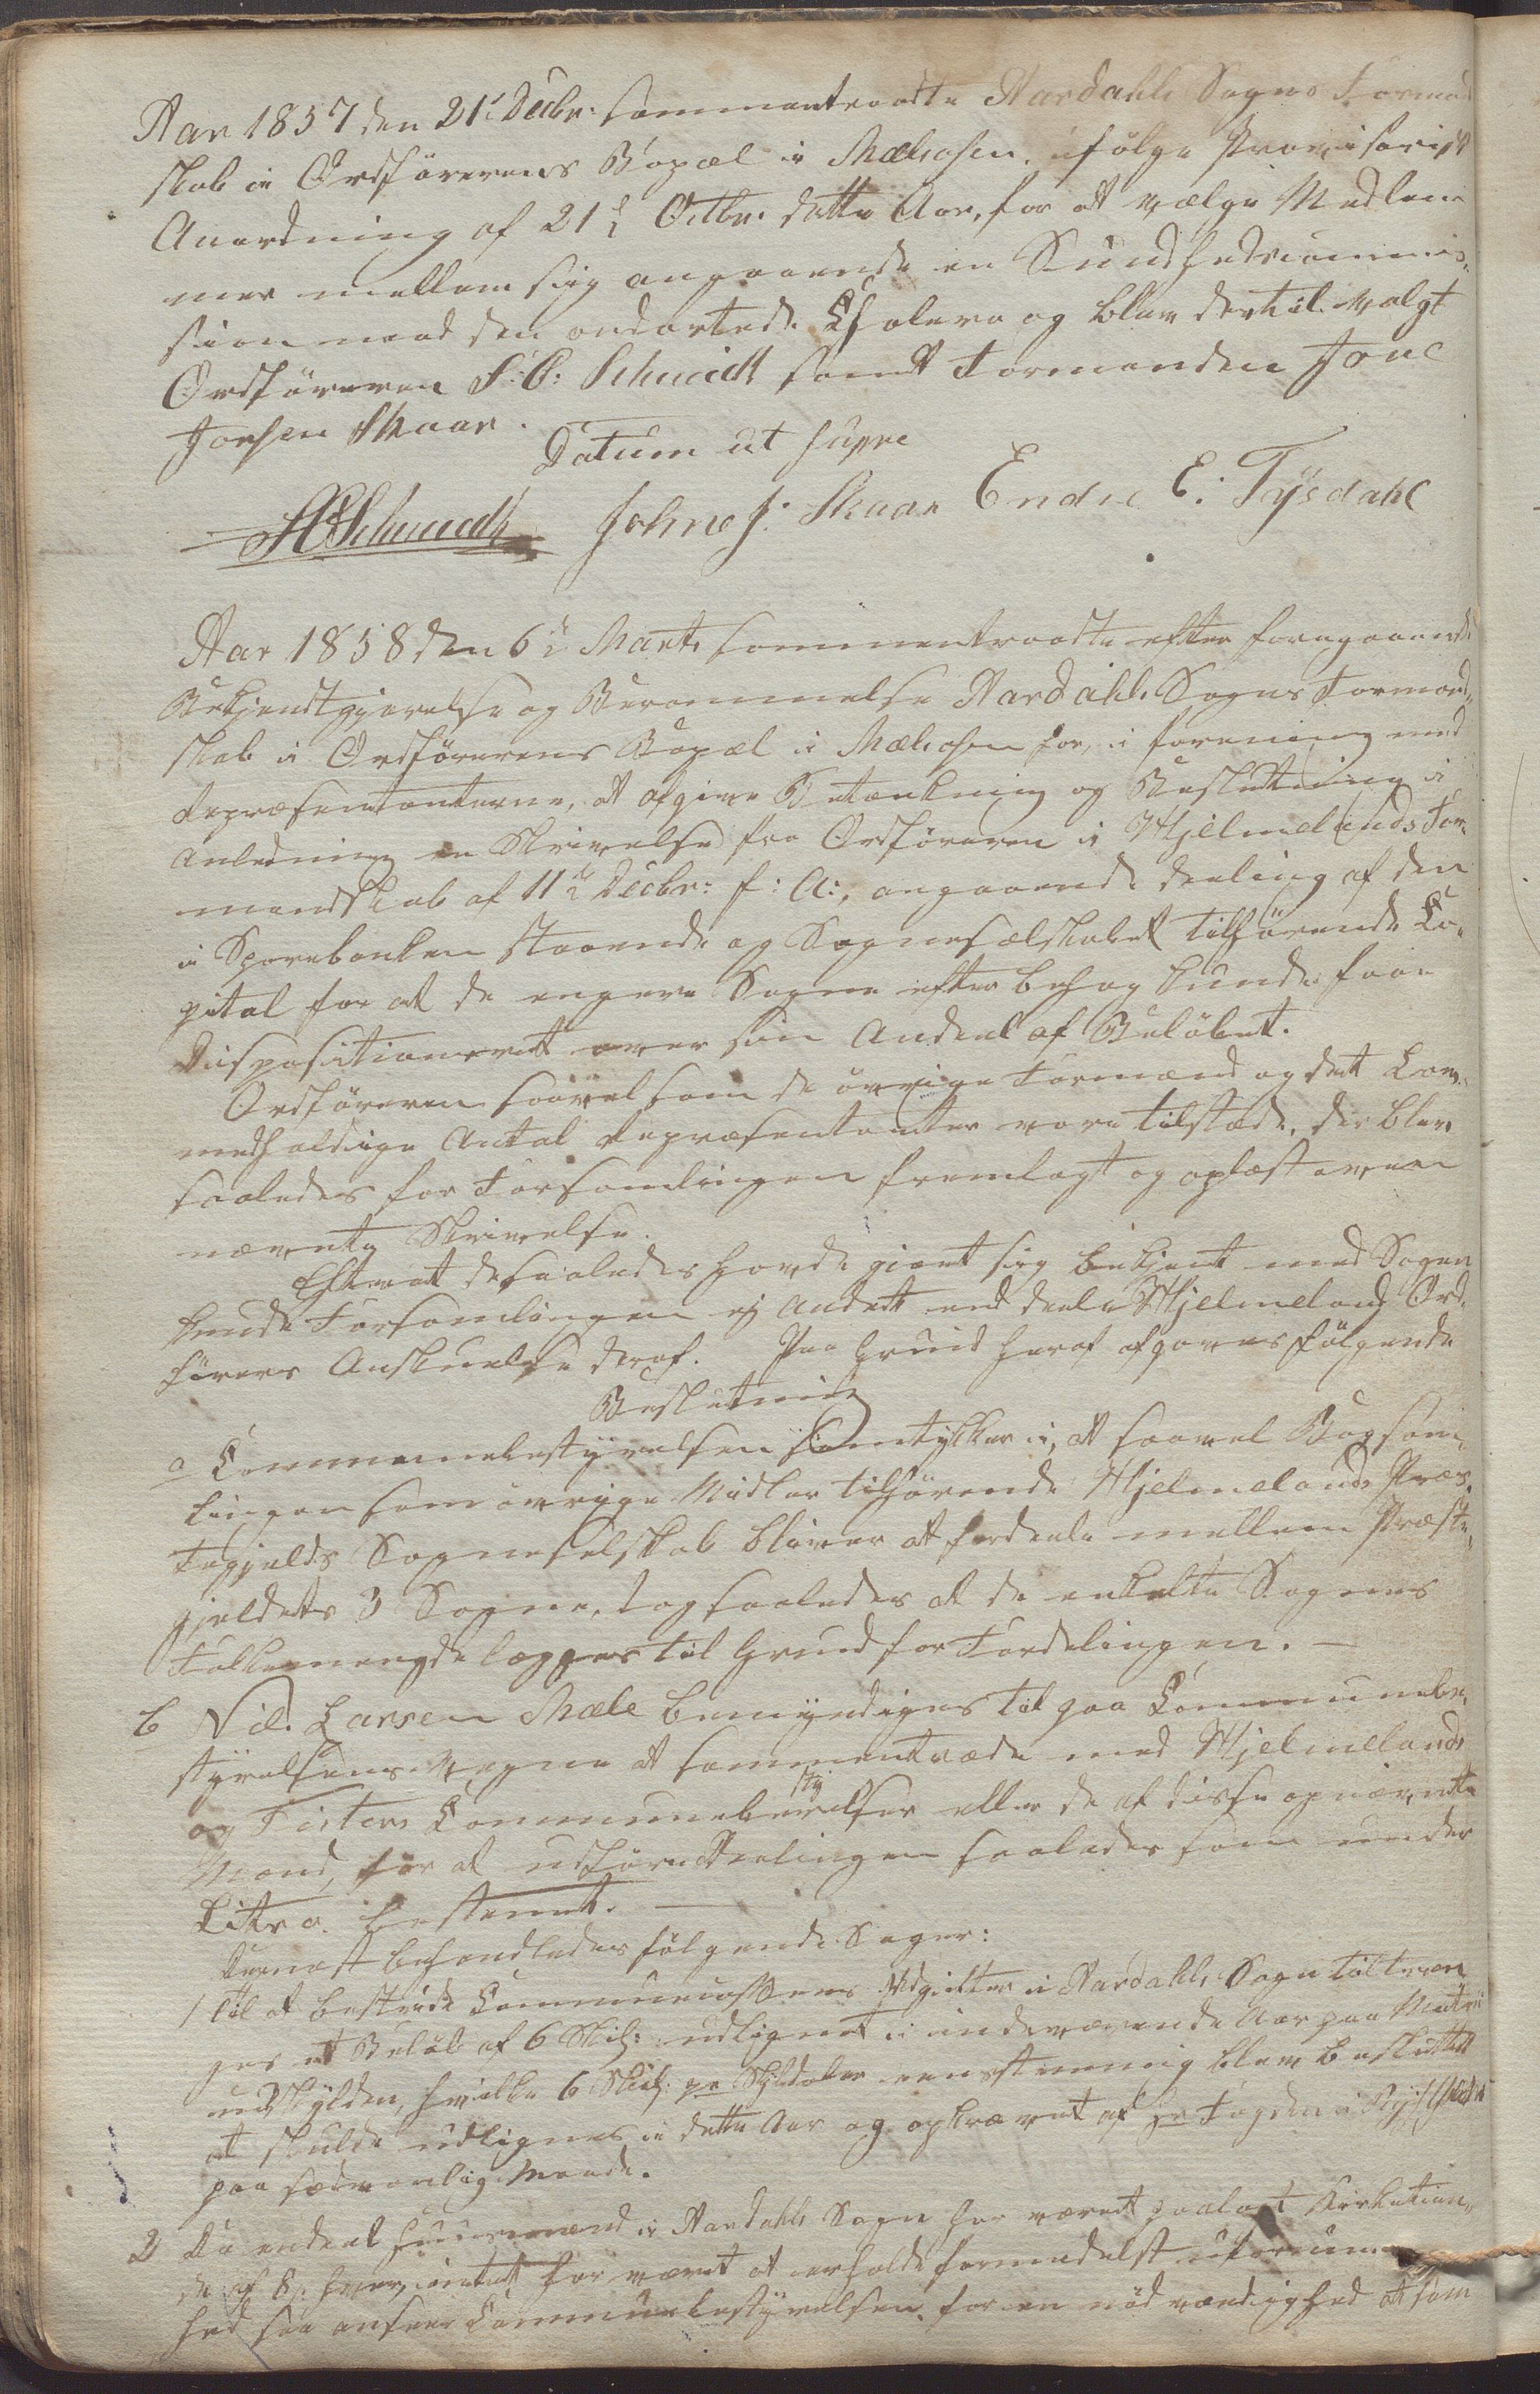 Aar 1857 den 21' Decbr: sammentraadte Aardahls Sogns Formand
skab i Ordførerens Bopæl i Mælsosen, ifølge Provisorisk
Anordning af 21d Octbr. dette Aar, for at vælge Medlem-
mer mellem sig angaaende en Sundhedscommis-
sion mod den ondartede Cholera og blev dertil valgt
Ordføreren S: C: Schmidt samt Formanden Jone
Jonsen Skaar.
Datum ut supra
Schmidt Johne J: Skaar Endre E: Tysdahl
Aar 1858 den 6te Marts sammentraadte efter foregaaende
Bekjendtgjørelse og Berammelse Aardahls Sogns Formand-
skab i Ordførerens Bopæl i Mælsosen for, i forening med
Repræsentanterne, at afgive Betænkning og Beslutning i
Anledning en Skrivelse fra Ordføreren i Hjelmelands For-
mandskab af 11te Decbr: f: A:, angaaende deeling af den
i Sparebanken staaende og Sognesælskabet tilhørende Ca-
pital for at de engere Sogne efter behag kunde faae
Dispositionsret over sin Andeel af Beløbet.
Ordføreren saavel som de øvrige Formænd og det Lov-
medholdige Antal Repræsentanter vare tilstæde, der blev
saaledes for Forsamlingen fremlagt og oplæst oven
nævnte Skrivelse.
Efterat de saaledes havde gjort sig bekjent med Sagen
kunde Forsamlingen ej Andett end deele Hjelmelands Ord-
førers Anskuelse deraf. Paa Grund heraf afgaves følgende
Beslutning
a Communebestyrelsen samtykker i, at saavel Bogsam-
lingen som øvrige Midler tilhørende Hjelmelands Præs-
tegjelds Sogneselskab bliver at fordeele mellem Præste-
gjeldets 3 Sogne, dog saaledes at de enkelte Sognes
Folkemengde lægges til Grund for Fordelingen. —
b Niel. Larsen Mæle bemyndiges til paa Communebe-
styrelsens Vegne at sammentræde med Hjelmelands
og Fisters Communebestyrelser eller de af disse opnævnte
Mænd, for at udføre Deelingen saaledes som under
Litr a. bestemt. —
Dernæst behandledes følgende Sager:
1 Til at bestride Communecassens Udgifter i Aardahls Sogn tiltræn
ges et Beløb af 6 Skil: udlignet i indeværende Aar paa Matri
culskylden, hvilke 6 Skil: pr Skyldaler eenstemmig blev besluttett
at skulde udlignes i dette Aar og opkrævet af Hr Fogden i Ryfylke
paa sædvanlig Maade.
2 Da endeel Huusmænd i Aardahls Sogn har været paalagt Kirketien-
de af 8 s hver, intet har været at erholde formedelst uformuen
hed saa anseer Communebestyrelsen for en nødvændighed at som